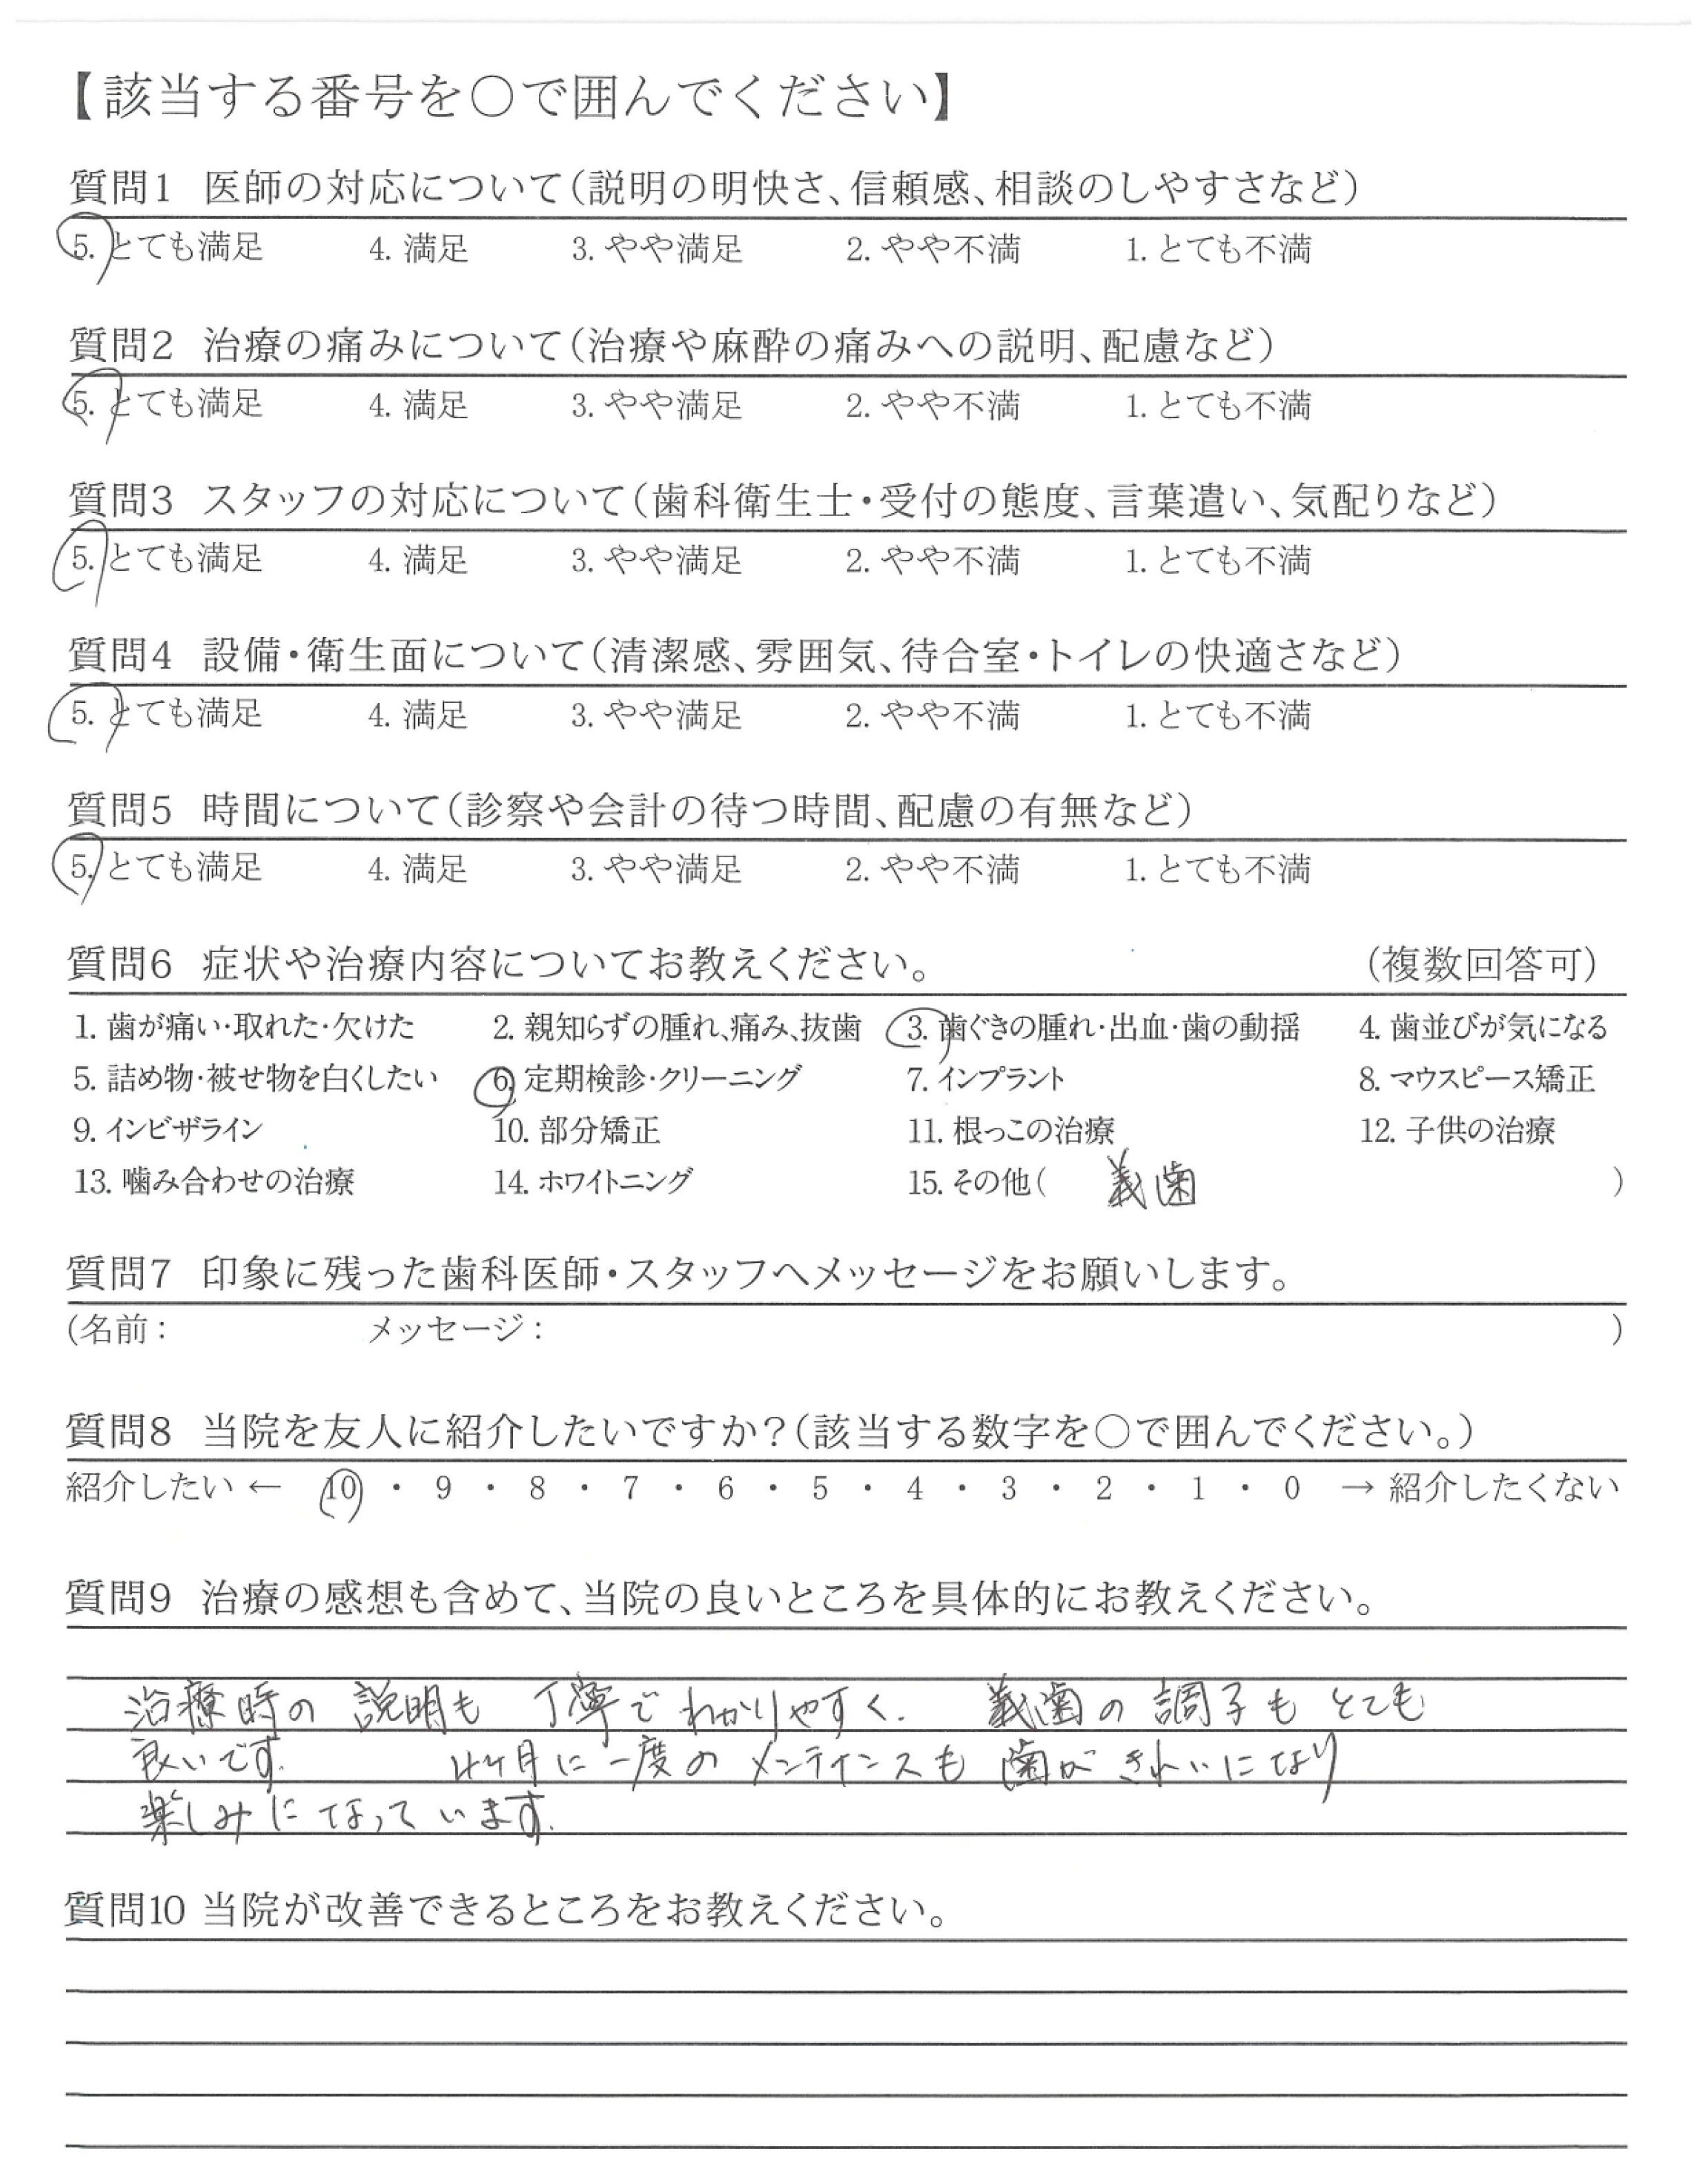 【該当する番号を○で囲んでください】
質問1 医師の対応について(説明の明快さ、信頼感、相談のしやすさなど)
5. とても満足 4. 満足 3. やや満足 2. やや不満 1. とても不満
質問2 治療の痛みについて(治療や麻酔の痛みへの説明、配慮など)
5. とても満足 4. 満足 3. やや満足 2. やや不満 1. とても不満
質問3 スタッフの対応について(歯科衛生士・受付の態度、言葉遣い、気配りなど)
5. とても満足 4. 満足 3. やや満足 2. やや不満 1. とても不満
質問4 設備・衛生面について(清潔感、雰囲気、待合室・トイレの快適さなど)
5. とても満足 4. 満足 3. やや満足 2. やや不満 1. とても不満
質問5 時間について(診察や会計の待つ時間、配慮の有無など)
5. とても満足 4. 満足 3. やや満足 2. やや不満 1. とても不満
質問6 症状や治療内容についてお教えください。 (複数回答可)
1. 歯が痛い・取れた・欠けた 2. 親知らずの腫れ、痛み、抜歯 3. 歯ぐきの腫れ・出血・歯の動揺 4. 歯並びが気になる
5. 詰め物・被せ物を白くしたい 6. 定期検診・クリーニング 7. インプラント 8. マウスピース矯正
9. インビザライン 10. 部分矯正 11. 根っこの治療 12. 子供の治療
13. 噛み合わせの治療 14. ホワイトニング 15. その他( 義歯 )
質問7 印象に残った歯科医師・スタッフへメッセージをお願いします。
(名前: メッセージ: )
質問8 当院を友人に紹介したいですか?(該当する数字を○で囲んでください。)
紹介したい ← 10 ・ 9 ・ 8 ・ 7 ・ 6 ・ 5 ・ 4 ・ 3 ・ 2 ・ 1 ・ 0 → 紹介したくない
質問9 治療の感想も含めて、当院の良いところを具体的にお教えください。
治療時の説明も丁寧でわかりやすく. 義歯の調子もとても
良いです. 4ヶ月に一度のメンテインスも歯がきれいになり
楽しみになっています.
質問10 当院が改善できるところをお教えください。